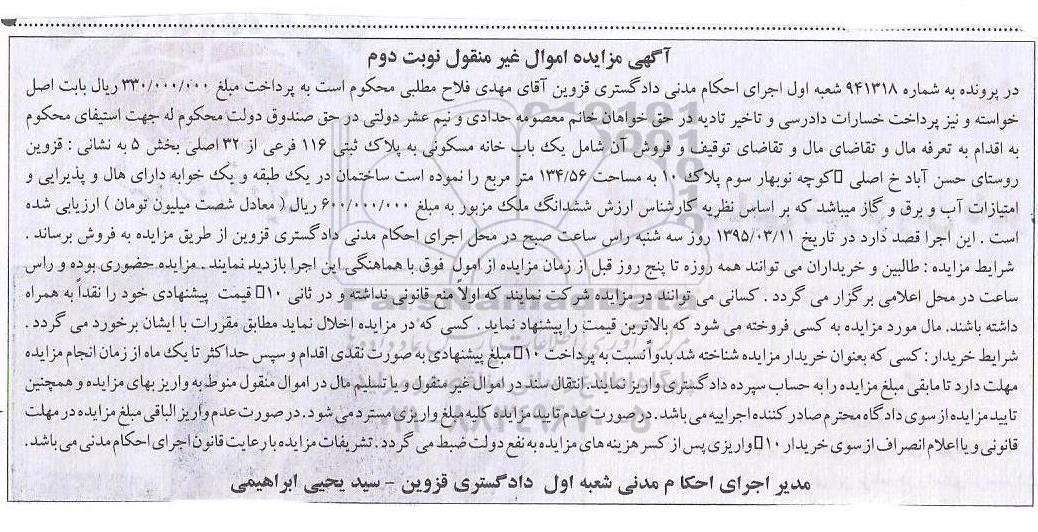 آگهی مزایده اموال غیر منقول نوبت دوم
در پرونده به شماره ۹۴۱۳۱۸ شعبه اول اجرای احکام مدنی دادگستری قزوین آقای مهدی فلاح مطلبی محکوم است به پرداخت مبلغ ۳۳۰/۰۰۰/۰۰۰ ریال بابت اصل
خواسته و نیز پرداخت خسارات دادرسی و تاخیر تادیه در حق خواهان خانم معصومه حدادی و نیم عشر دولتی در حق صندوق دولت محکوم له جهت استیفای محکوم
به اقدام به تعرفه مال و تقاضای مال و تقاضای توقیف و فروش آن شامل یک باب خانه مسکونی به پلاک ثبتی ۱۱۶ فرعی از ۳۲ اصلی بخش ۵ به نشانی : قزوین
روستای حسن آباد خ اصلی کوچه نوبهار سوم پلاک ۱۰ به مساحت ۱۳۴/۵۶ متر مربع را نموده است ساختمان در یک طبقه و یک خوابه دارای هال و پذیرایی و
امتیازات آب و برق و گاز میباشد که بر اساس نظریه کارشناس ارزش ششدانگ ملک مزبور به مبلغ ۶۰۰/۰۰۰/۰۰۰ ریال ( معادل شصت میلیون تومان ) ارزیابی شده
است . این اجرا قصد دارد در تاریخ ۱۳۹۵/۰۳/۱۱ روز سه شنبه راس ساعت صبح در محل اجرای احکام مدنی دادگستری قزوین از طریق مزایده به فروش برساند .
شرایط مزایده : طالبین و خریداران می توانند همه روزه تا پنج روز قبل از زمان مزایده از اموال فوق با هماهنگی این اجرا بازدید نمایند . مزایده حضوری بوده و راس
ساعت در محل اعلامی برگزار می گردد . کسانی می توانند در مزایده شرکت نمایند که اولاً منع قانونی نداشته و در ثانی ۱۰ قیمت پیشنهادی خود را نقداً به همراه
داشته باشند. مال مورد مزایده به کسی فروخته می شود که بالاترین قیمت را پیشنهاد نماید . کسی که در مزایده اخلال نماید مطابق مقررات با ایشان برخورد می گردد .
شرایط خریدار : کسی که بعنوان خریدار مزایده شناخته شد بدواً نسبت به پرداخت ۱۰ مبلغ پیشنهادی به صورت نقدی اقدام و سپس حداکثر تا یک ماه از زمان انجام مزایده
مهلت دارد تا مابقی مبلغ مزایده را به حساب سپرده دادگستری واریز نمایند. انتقال سند در اموال غیر منقول و یا تسلیم مال در اموال منقول منوط به واریز بهای مزایده و همچنین
تایید مزایده از سوی دادگاه محترم صادر کننده اجراییه می باشد. در صورت عدم تایید مزایده کلیه مبلغ واریزی مسترد می شود. در صورت عدم واریز الباقی مبلغ مزایده در مهلت
قانونی و یا اعلام انصراف از سوی خریدار ۱۰ واریزی پس از کسر هزینه های مزایده به نفع دولت ضبط می گردد . تشریفات مزایده با رعایت قانون اجرای احکام مدنی می باشد.
مدیر اجرای احکام مدنی شعبه اول دادگستری قزوین - سید یحیی ابراهیمی
ParsNamadData